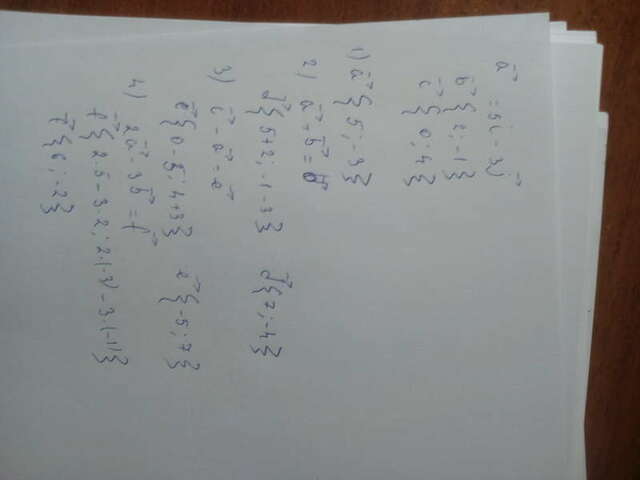 a⃗ = 5i⃗ - 3j⃗
b⃗ {2; -1}
c⃗ {0; 4}
1) a⃗ {5; -3}
2) a⃗ + b⃗ = d⃗
d⃗ {5+2; -1-3} d⃗ {7; -4}
3) c⃗ - a⃗ = e⃗
e⃗ {0-5; 4+3} e⃗ {-5; 7}
4) 2a⃗ - 3b⃗ = f⃗
f⃗ {2·5-3·2; 2·(-3)-3·(-1)}
f⃗ {6; -2}